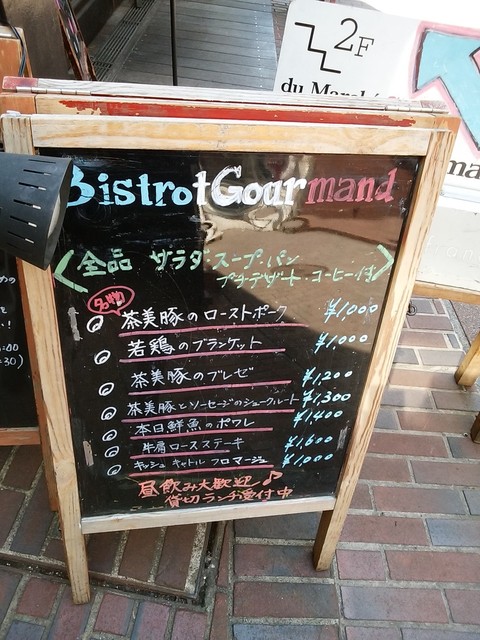 2F
du Marché
BistrotGourmand
全品 サラダ・スープ・パン
プチデザート・コーヒー付
名物
茶美豚のローストポーク ¥1,000
若鶏のブランケット ¥1,000
茶美豚のブレゼ ¥1,200
茶美豚とソーセージのシュークルート ¥1,300
本日鮮魚のポワレ ¥1,400
牛肩ロースステーキ ¥1,600
キッシュ キャトル フロマージュ ¥1,000
昼飲み大歓迎♪
貸切ランチ受付中